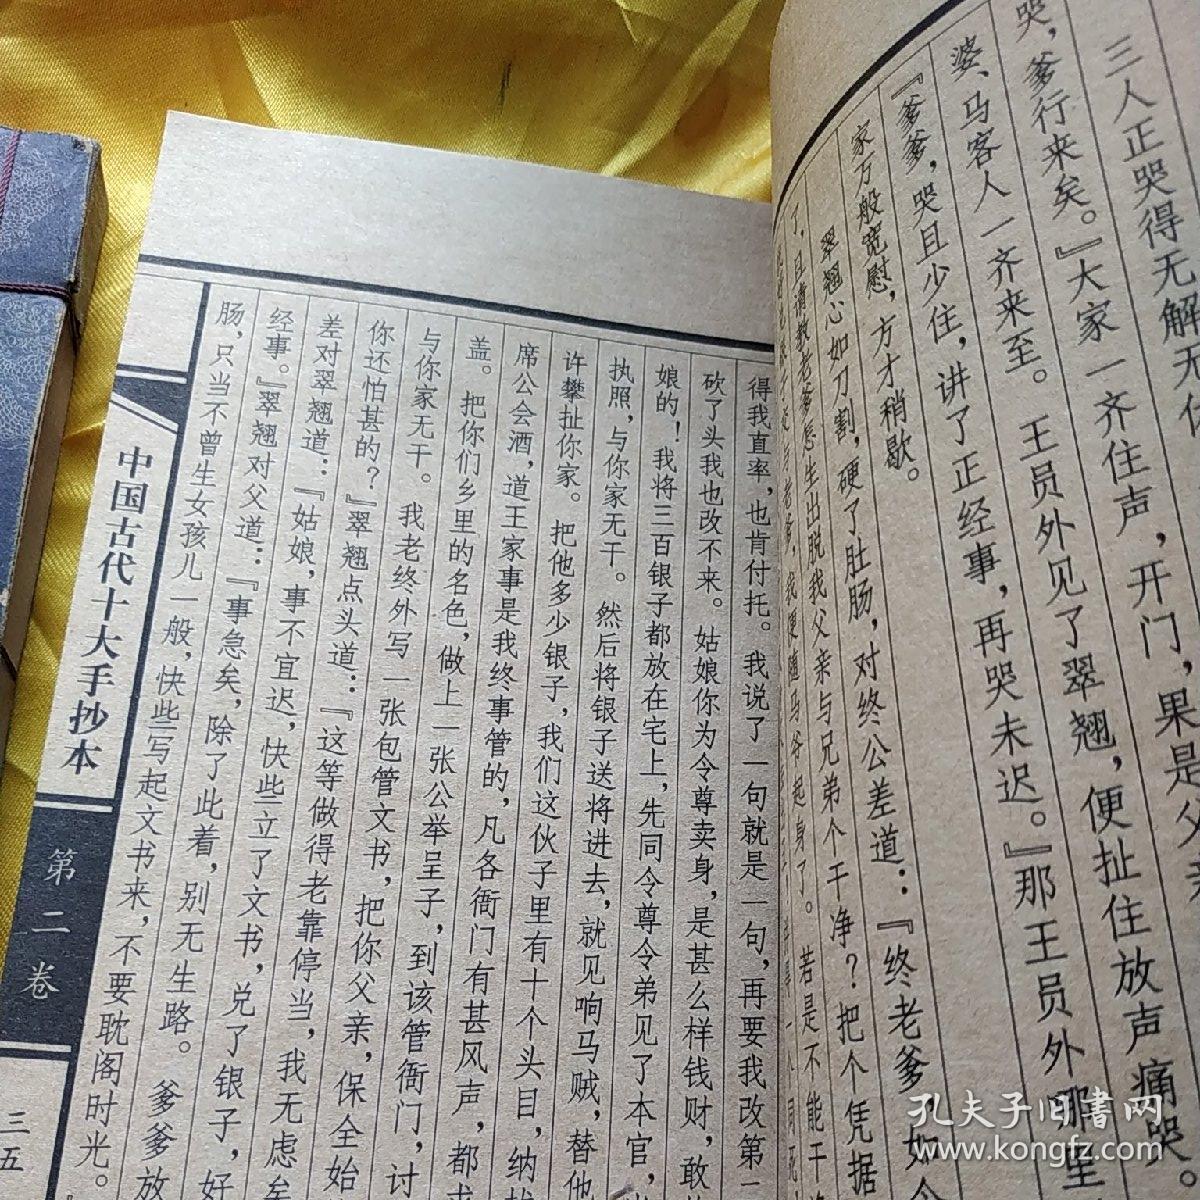 三人正哭得无解无
哭，爹行来矣。』大家一齐住声，开门，果是父
婆、马客人一齐来至。王员外见了翠翘，便扯住放声痛哭。
『爹爹，哭且少住，讲了正经事，再哭未迟。』那王员外哪里
家万般宽慰，方才稍歇。
翠翘心如刀割，硬了肚肠，对终公差道：『终老爹，如
了，且请教老爹怎生出脱我父亲与兄弟个干净？把个凭据
我便随马爷起身了。若是不能干
得我直率，也肯付托。我说了一句就是一句，再要我改第
砍了头我也改不来。姑娘你为令尊卖身，是甚么样钱财，敢
娘的！我将三百银子都放在宅上，先同令尊令弟见了本官，
执照，与你家无干。然后将银子送将进去，就见响马贼，替他
许攀扯你家。把他多少银子，我们这伙子里有十个头目，纳
席公会酒，道王家事是我终事管的，凡各衙门有甚风声，都
盖。把你们乡里的名色，做上一张公举呈子，到该管衙门，讨
与你家无干。我老终外写一张包管文书，把你父亲，保全始
你还怕甚的？』翠翘点头道：『这等做得老靠停当，我无虑矣
差对翠翘道：『姑娘，事不宜迟，快些立了文书，兑了银子，好
经事。』翠翘对父道：『事急矣，除了此着，别无生路。爹爹放
肠，只当不曾生女孩儿一般，快些写起文书来，不要耽阁时光。
中国古代十大手抄本
第二卷
三五
孔夫子旧书网
www.kongfz.com